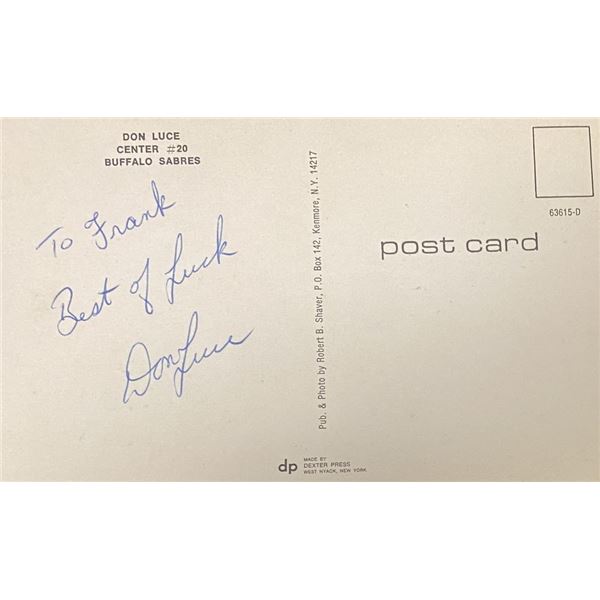 DON LUCE
CENTER #20
BUFFALO SABRES
To Frank
Best of Luck
Don Luce
Pub. & Photo by Robert B. Shaver, P.O. Box 142, Kenmore, N.Y. 14217
63615-D
post card
dp
MADE BY
DEXTER PRESS
WEST NYACK, NEW YORK